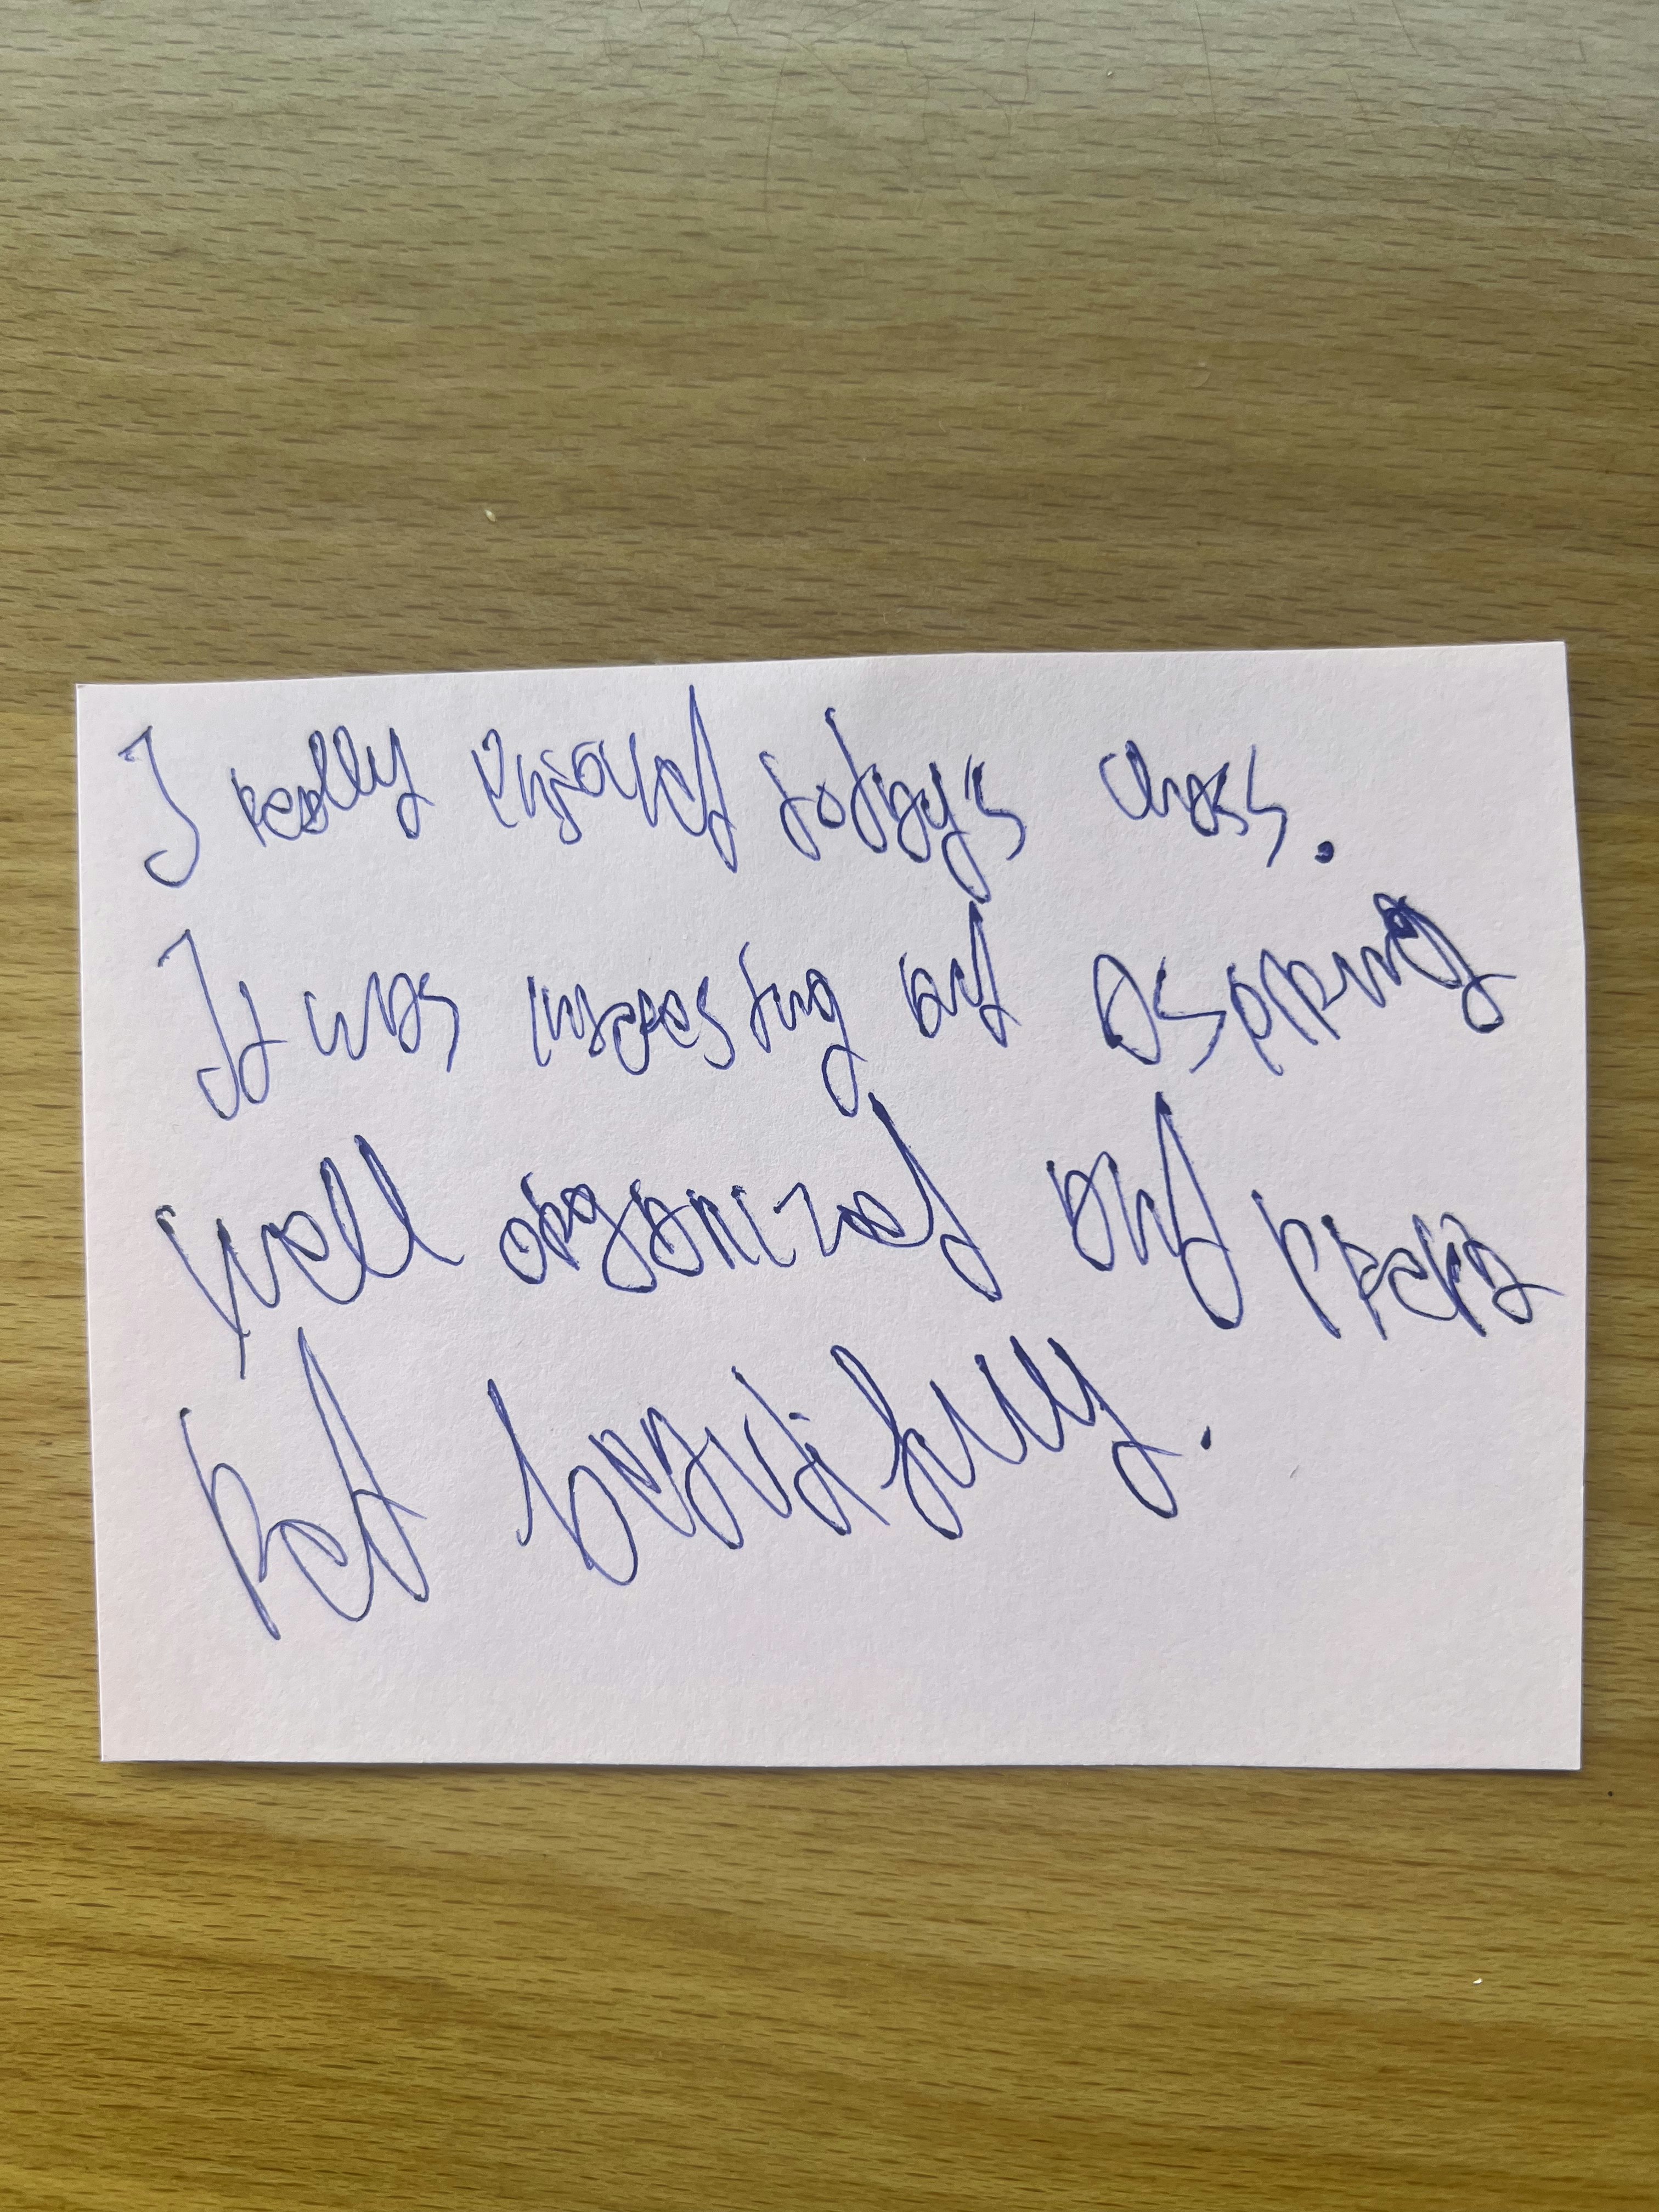 I really enjoyed today's class.
It was interesting and aspiring
well organized and prepa
red beautifully.